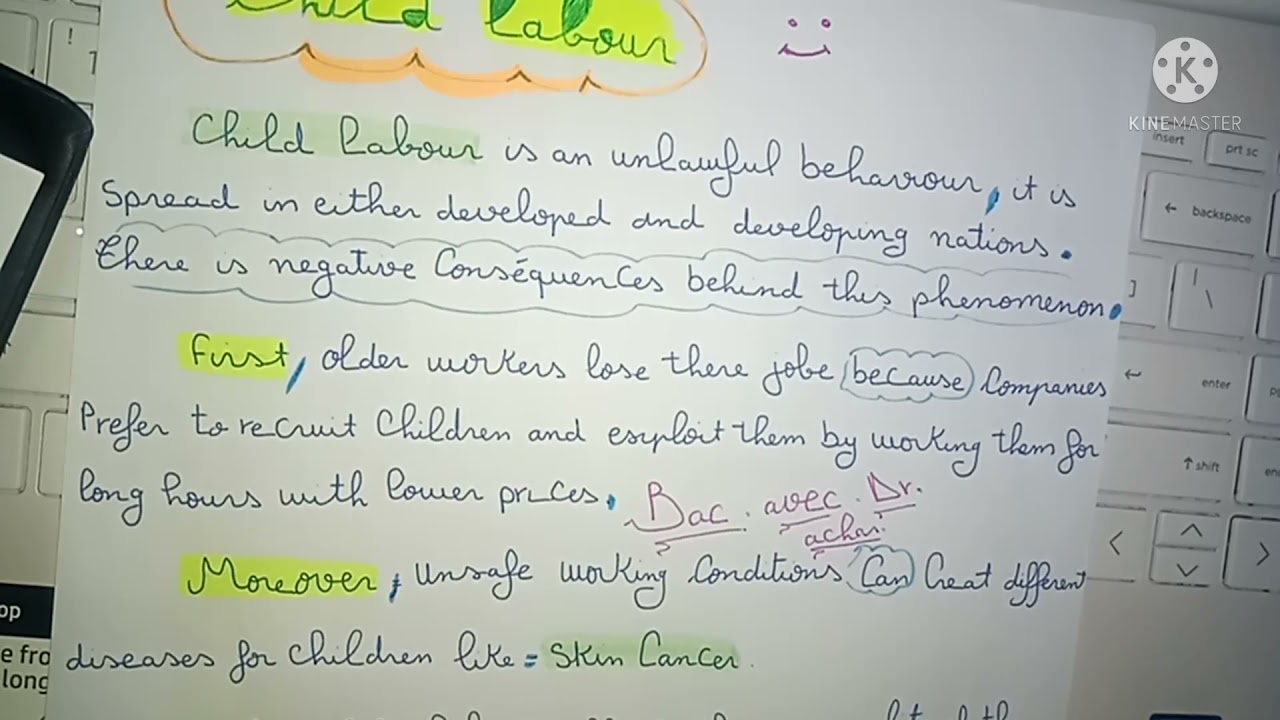 Child Labour
KINEMASTER
Child Labour is an unlawful behaviour, it is
Spread in either developed and developing nations.
There is negative Conséquences behind this phenomenon.
First, older workers lose there jobe because Companies
Prefer to recruit Children and exploit them by working them for
long hours with lower prices.
Bac. avec. Dr.
achar.
Moreover, Unsafe working Conditions Can Creat different
diseases for children like = Skin Cancer.
!
1
insert
prt sc
← backspace
]
|
\
enter
↑ shift
op
e fro
long